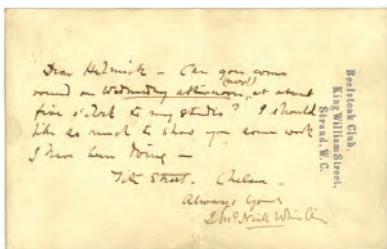 Dear Helmick - Can you come
(next)
round on Wednesday afternoon, at about
five o'clock to my studio? I should
like so much to show you some work
I have been doing -
Tite Street. Chelsea -
Always Yours
J McNeill Whistler
Beefsteak Club,
King William Street,
Strand, W.C.